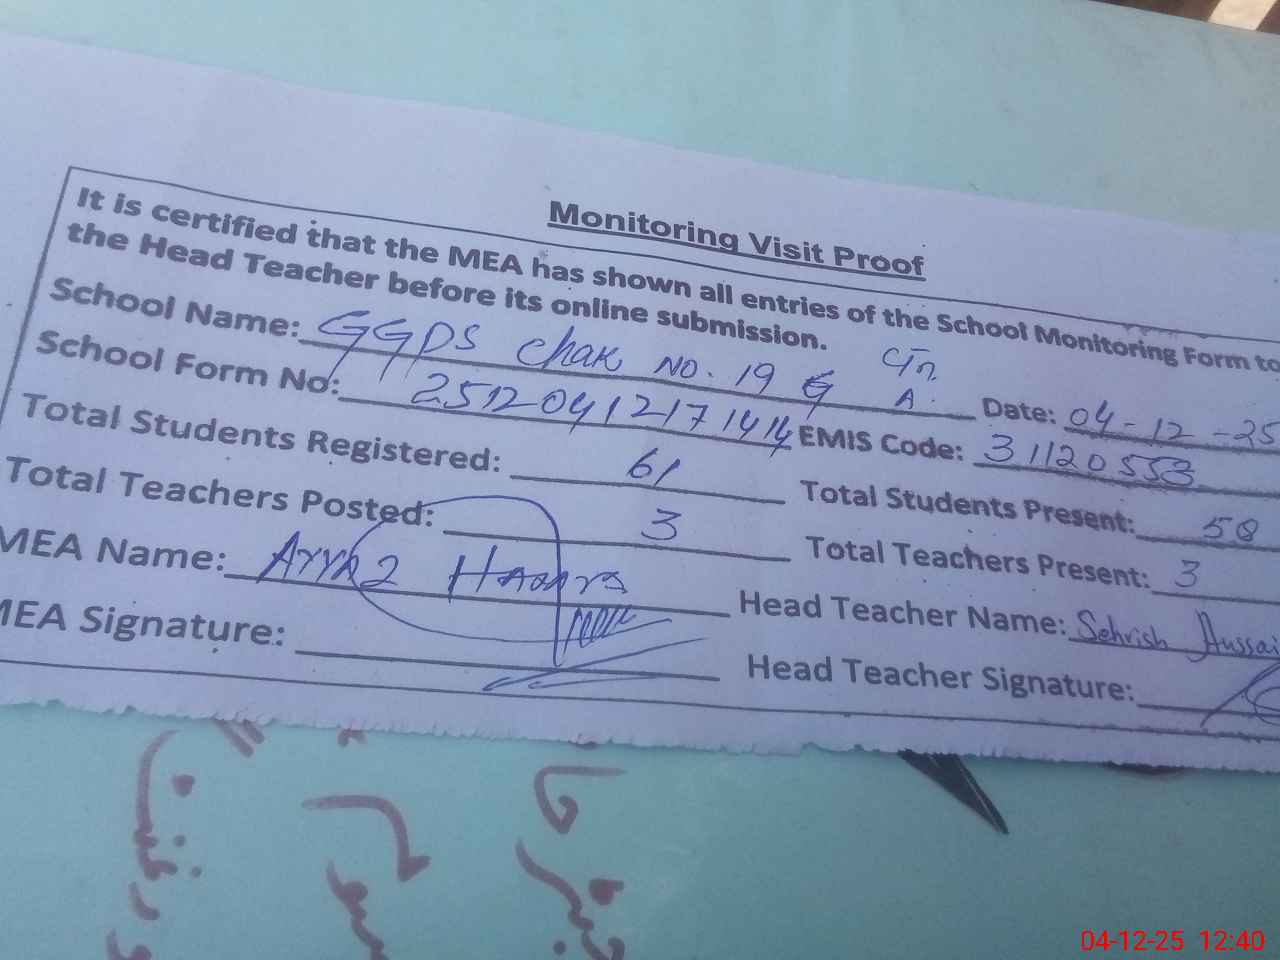 Monitoring Visit Proof
It is certified that the MEA has shown all entries of the School Monitoring Form to
the Head Teacher before its online submission.
School Name: GGPS Chak No. 19 G
Date: 04-12-25
School Form No: 25120412171414 EMIS Code: 31120553
Total Students Registered: 61 Total Students Present: 58
Total Teachers Posted: 3 Total Teachers Present: 3
MEA Name: Head Teacher Name: Sehrish Hussai
MEA Signature: Head Teacher Signature:
04-12-25 12:40